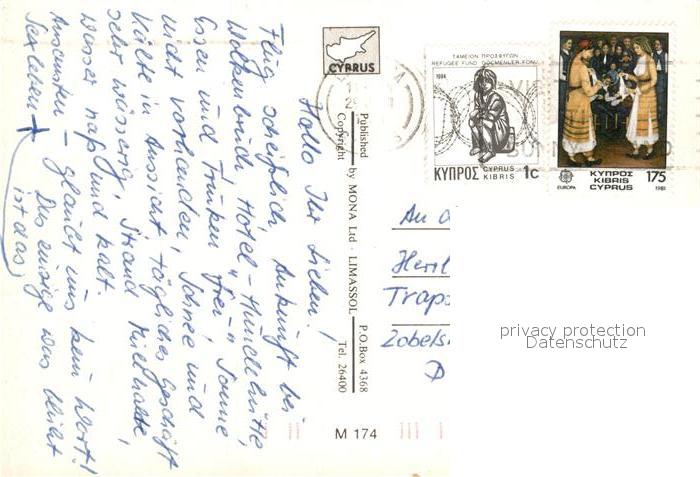 Hallo Ihr Lieben!
Flug scheißlich Ankunft bei
Wolkenbruch Hotel - Hundehütte,
Essen und Trinken "frei", Sonne
nicht vorhanden, Schnee und
Kälte in Aussicht, tägliches Geschäft
sehr wässerig, Strand Müllhalde,
Wasser naß und kalt.
Ansonsten - glaubt uns kein Wort!
Das einzige was bleibt
Sexleben
ist das
CYPRUS
Published by MONA Ltd - LIMASSOL P.O.Box 4368
Copyright Tel. 26400
M 174
ΤΑΜΕΙΟΝ ΠΡΟΣΦΥΓΩΝ
REFUGEE FUND GÖÇMENLER FONU
1984
ΚΥΠΡΟΣ CYPRUS KIBRIS 1c
EUROPA
ΚΥΠΡΟΣ
KIBRIS
CYPRUS
175
1981
An
Traps
Zobels
D
privacy protection
Datenschutz